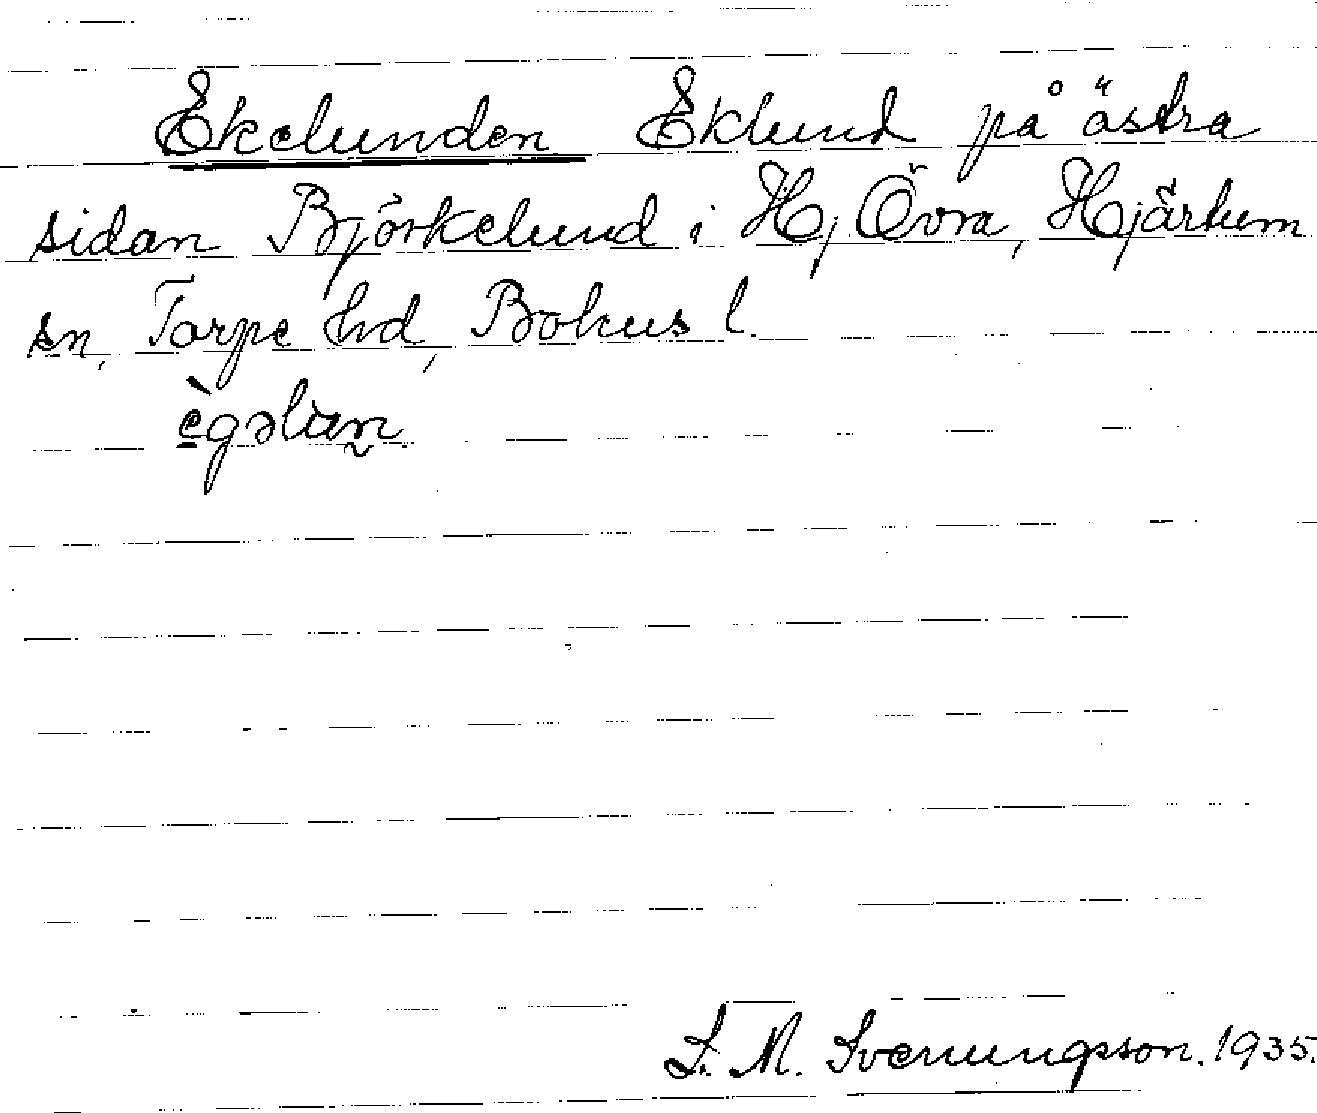 Ekelunden Eklund på östra
sidan Björkelund i H, Övra, Hjärtum
sn, Torpe hd, Bohus l.
S. M. Svenungsson. 1935.